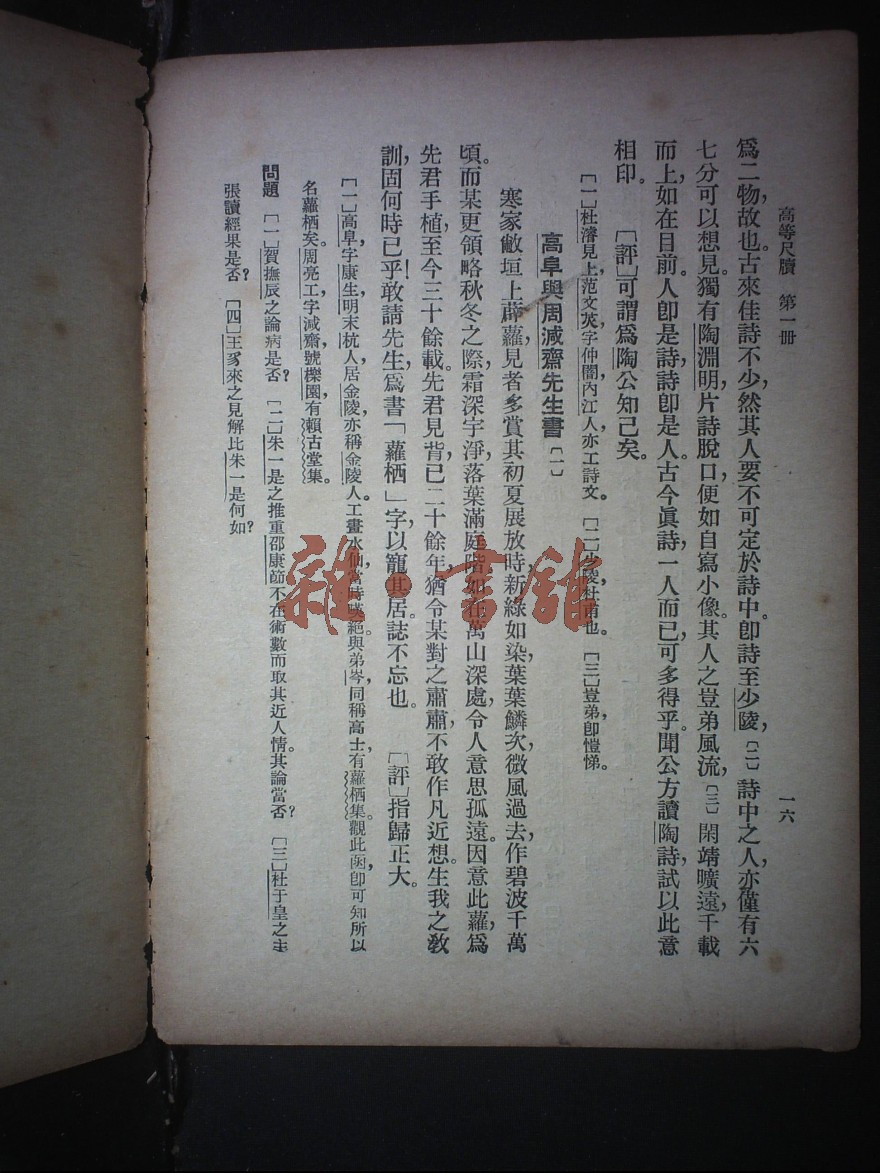 高等尺牘　第一冊
一六
爲二物故也。古來佳詩不少，然其人要不可定於詩中。卽詩至少陵，〔二〕詩中之人，亦僅有六
七分可以想見。獨有陶淵明，片詩脫口，便如自寫小像。其人之豈弟風流，〔三〕閑靖曠遠，千載
而上，如在目前。人卽是詩，詩卽是人。古今眞詩，一人而已，可多得乎。聞公方讀陶詩，試以此意
相印。　〔評〕可謂爲陶公知己矣。
〔一〕杜濬見上。范文茨字仲闇，內江人，亦工詩文。〔二〕少陵，杜甫也。〔三〕豈弟，卽愷悌。
高阜與周減齋先生書〔一〕
寒家敝垣上薜蘿，見者多賞其初夏展放時，新綠如染，葉葉鱗次，微風過去，作碧波千萬
頃。而某更領略秋冬之際，霜深宇淨，落葉滿庭階，如在萬山深處，令人意思孤遠。因意此蘿爲
先君手植，至今三十餘載。先君見背，已二十餘年，猶令某對之肅肅，不敢作凡近想。生我之敎
訓，固何時已乎！敢請先生爲書「蘿栖」字，以寵其居。誌不忘也。　〔評〕指歸正大。
〔一〕高阜，字康生，明末杭人，居金陵，亦稱金陵人。工畫水仙，當時嘆絕。與弟岑，同稱高士，有蘿栖集。觀此函，卽可知所以
名蘿栖矣。周亮工字減齋，號櫟園，有賴古堂集。
問題　〔一〕賀撫辰之論病是否？　〔二〕朱一是之推重邵康節，不在術數，而取其近人情，其論當否？　〔三〕杜于皇之主
張讀經果是否？　〔四〕王豸來之見解比朱一是何如？
雜·書館